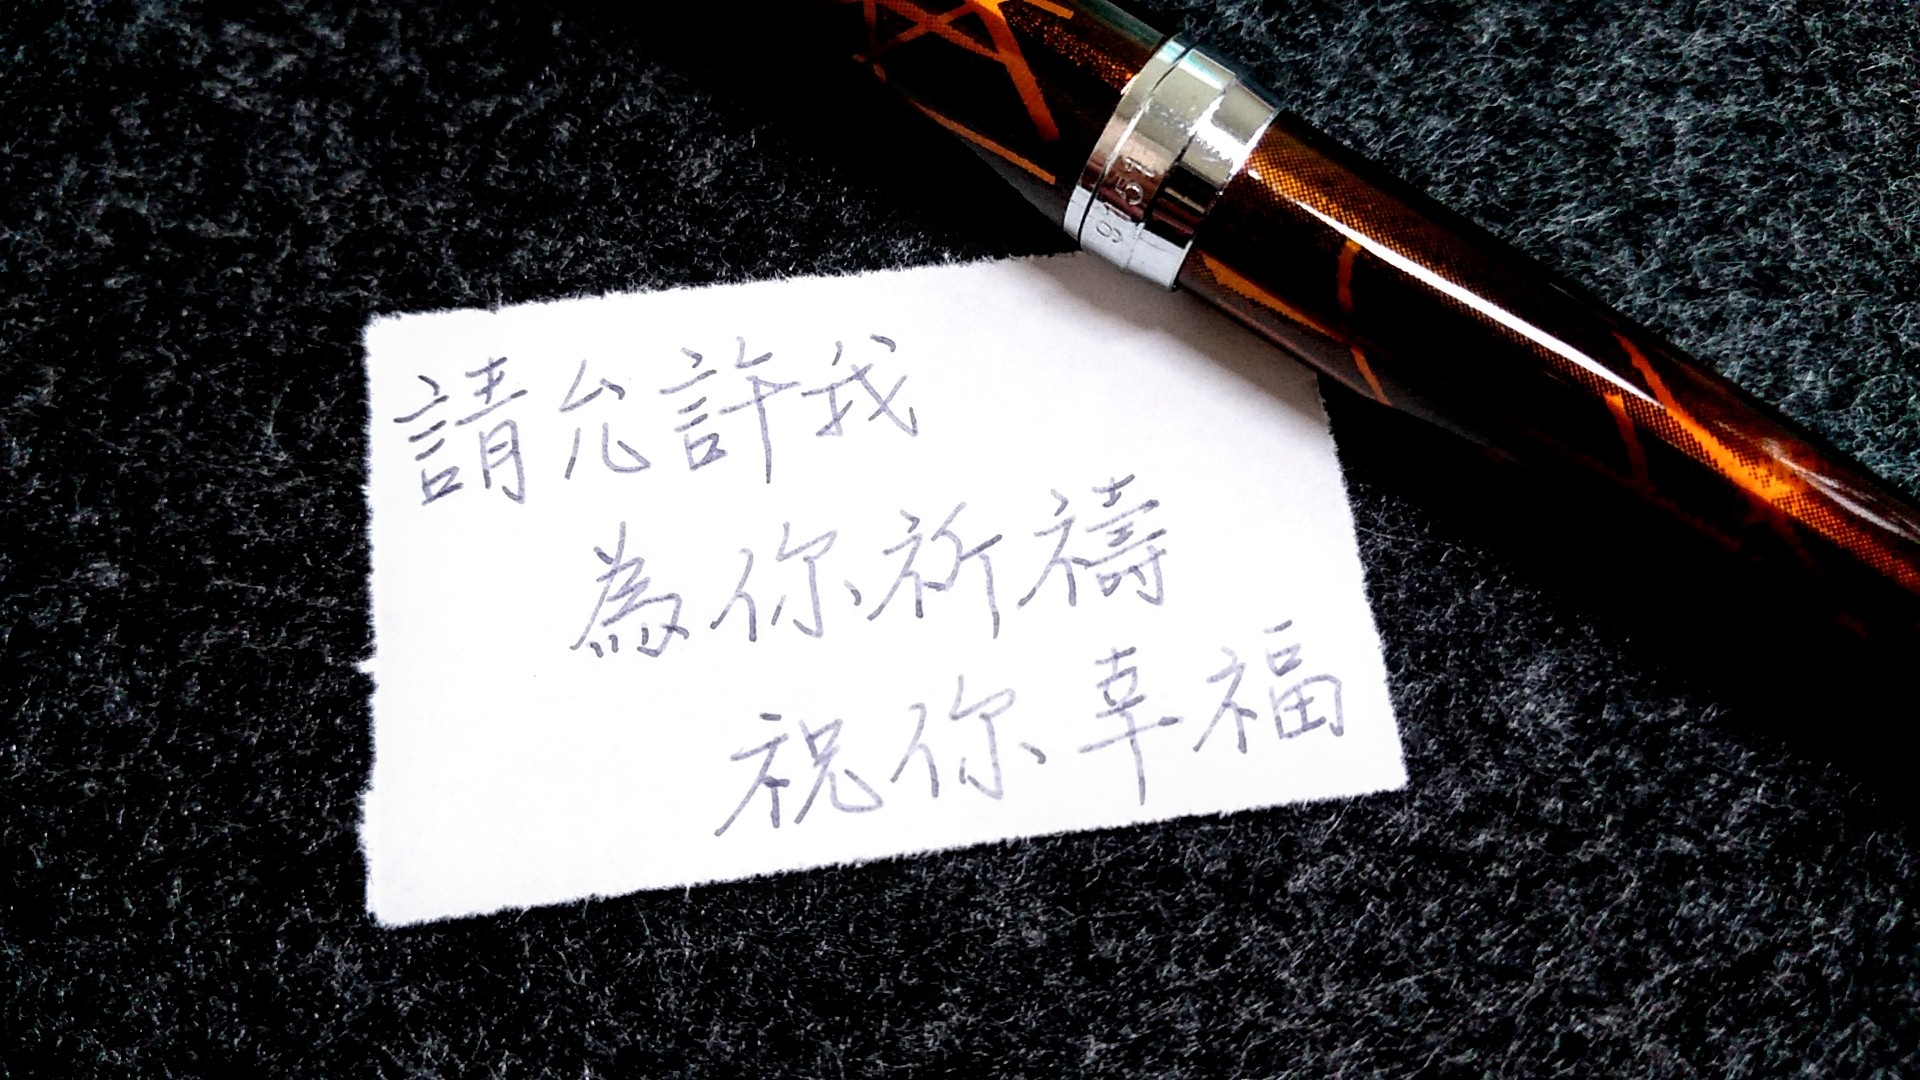 請允許我
為你祈禱
祝你幸福
9151